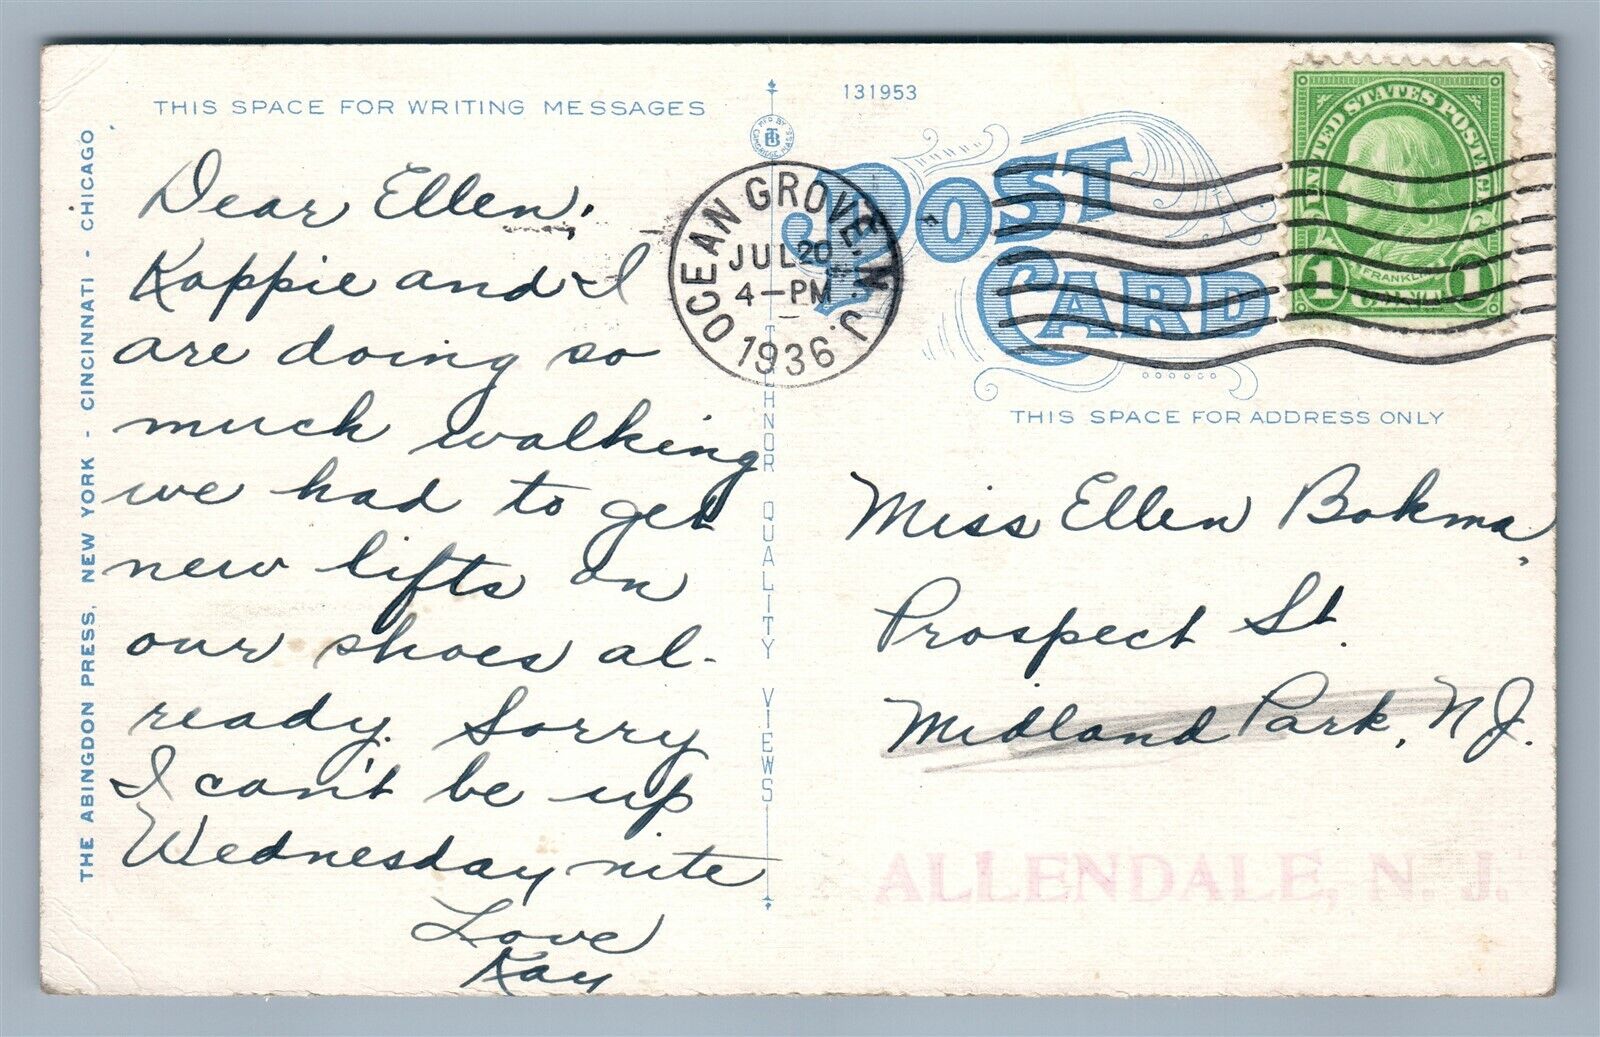 THIS SPACE FOR WRITING MESSAGES
Dear Ellen,
Kappie and I
are doing so
much walking
we had to get
new lifts on
our shoes al-
ready. Sorry
I can't be up
Wednesday nite
Love
Kay
THE ABINGDON PRESS, NEW YORK - CINCINNATI - CHICAGO
MF'D BY
CTB
CAMBRIDGE, MASS.
QUALITY VIEWS
131953
POST
CARD
OCEAN GROVE, N. J.
JUL 20
4-PM
1936
UNITED STATES POSTAGE
FRANKLIN
1 1
THIS SPACE FOR ADDRESS ONLY
Miss Ellen Bokma,
Prospect St.
Midland Park, N.J.
ALLENDALE, N. J.